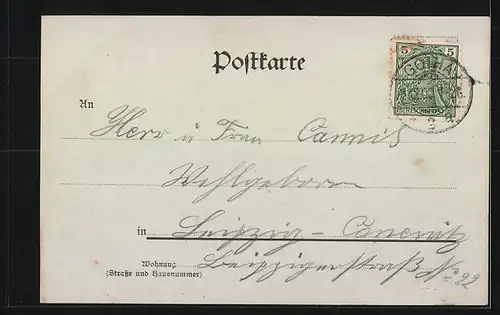 Postkarte
5 5
GOTHA
An
Herr u Frau Cannis
Wohlgeboren
in Leipzig-Connewitz
Wohnung
(Straße und Hausnummer)
Leipzigerstraß No 22